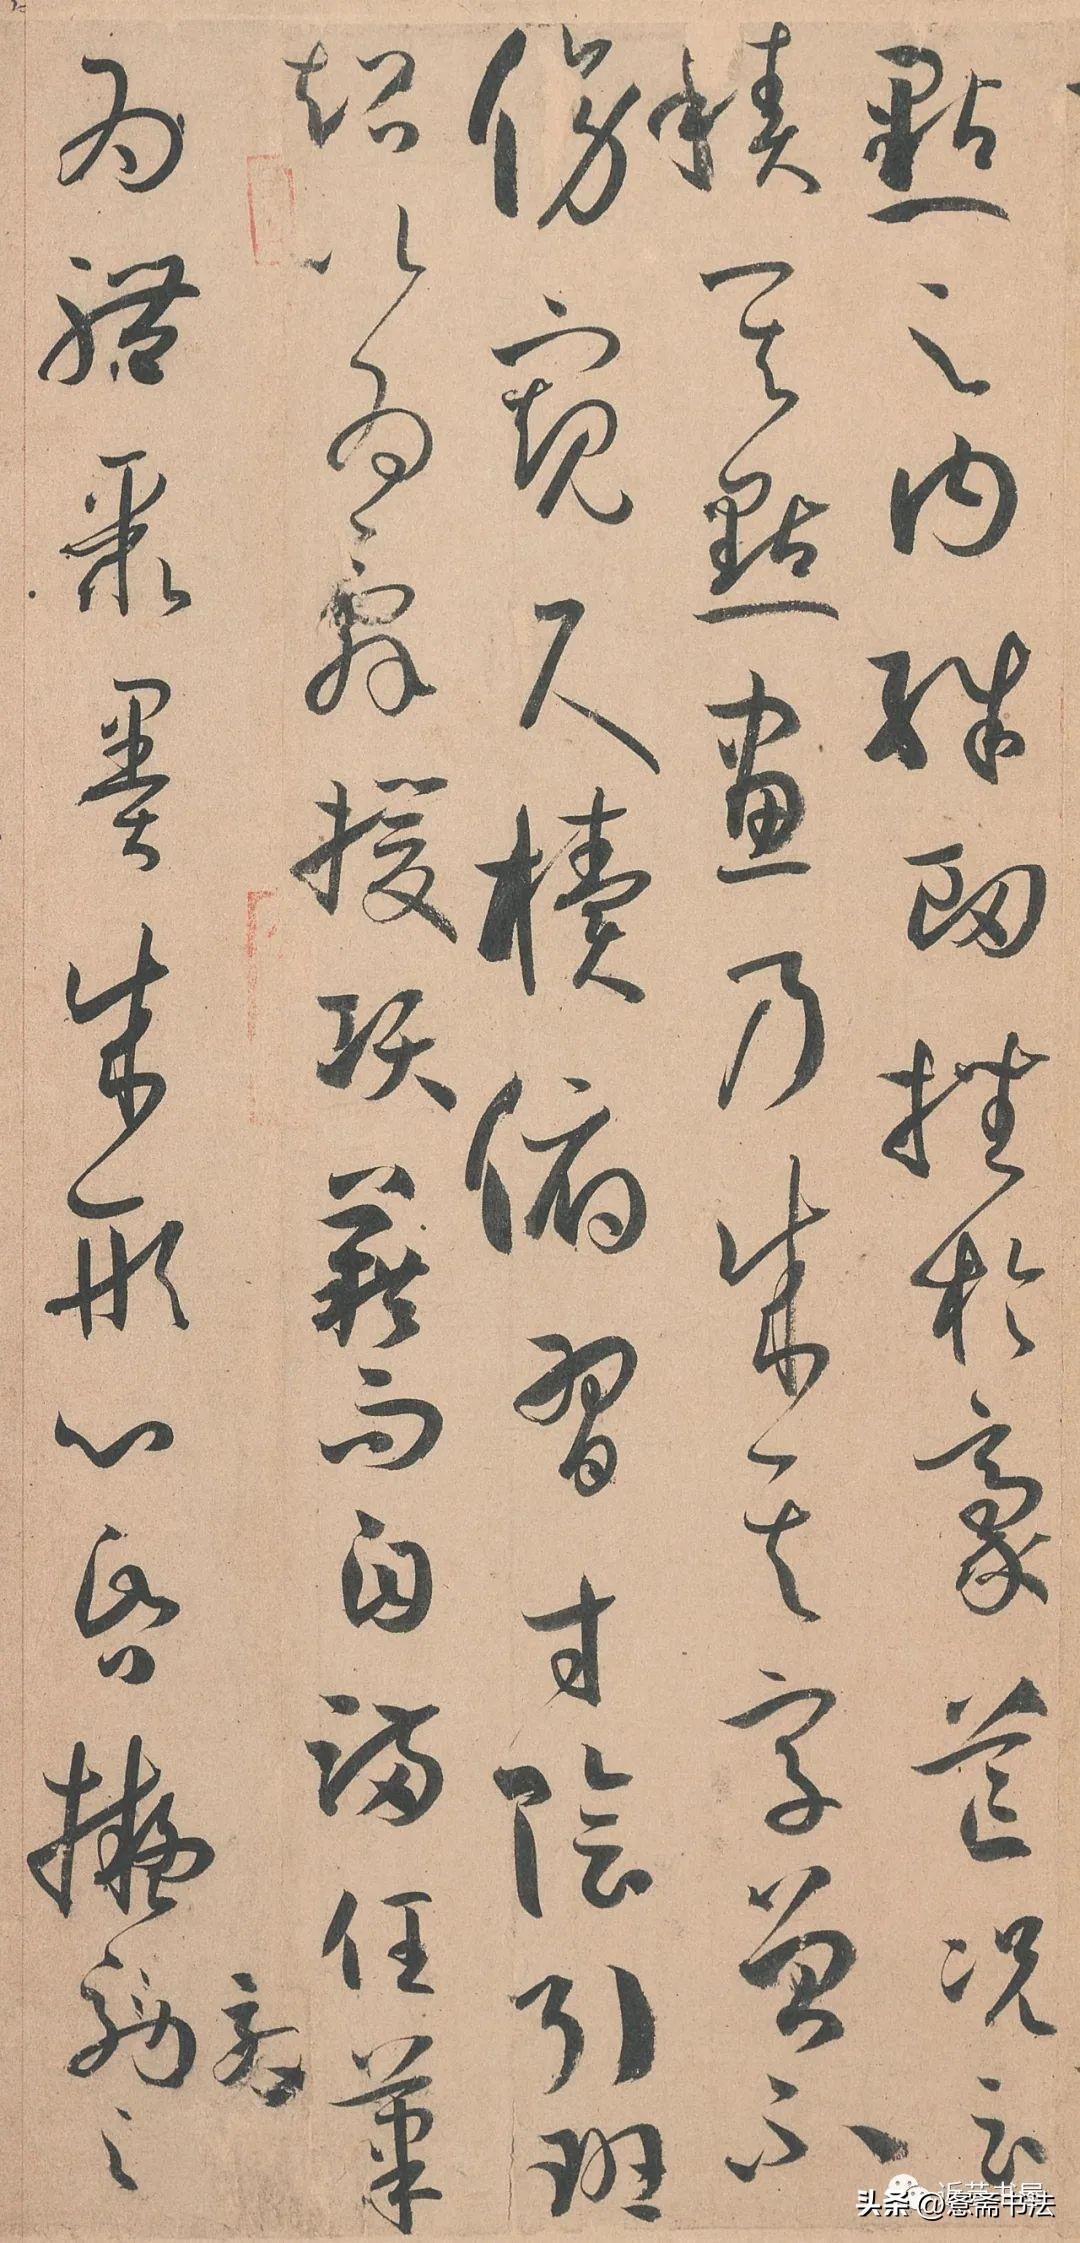 點之內殊衂挫於豪芒况云
積其點畫乃成其字曾不
傍窺尺櫝俯習寸陰引班
超以為辭援項籍而自滿任筆
為體聚墨成形心昏擬効之
方
头条 @愙斋书法